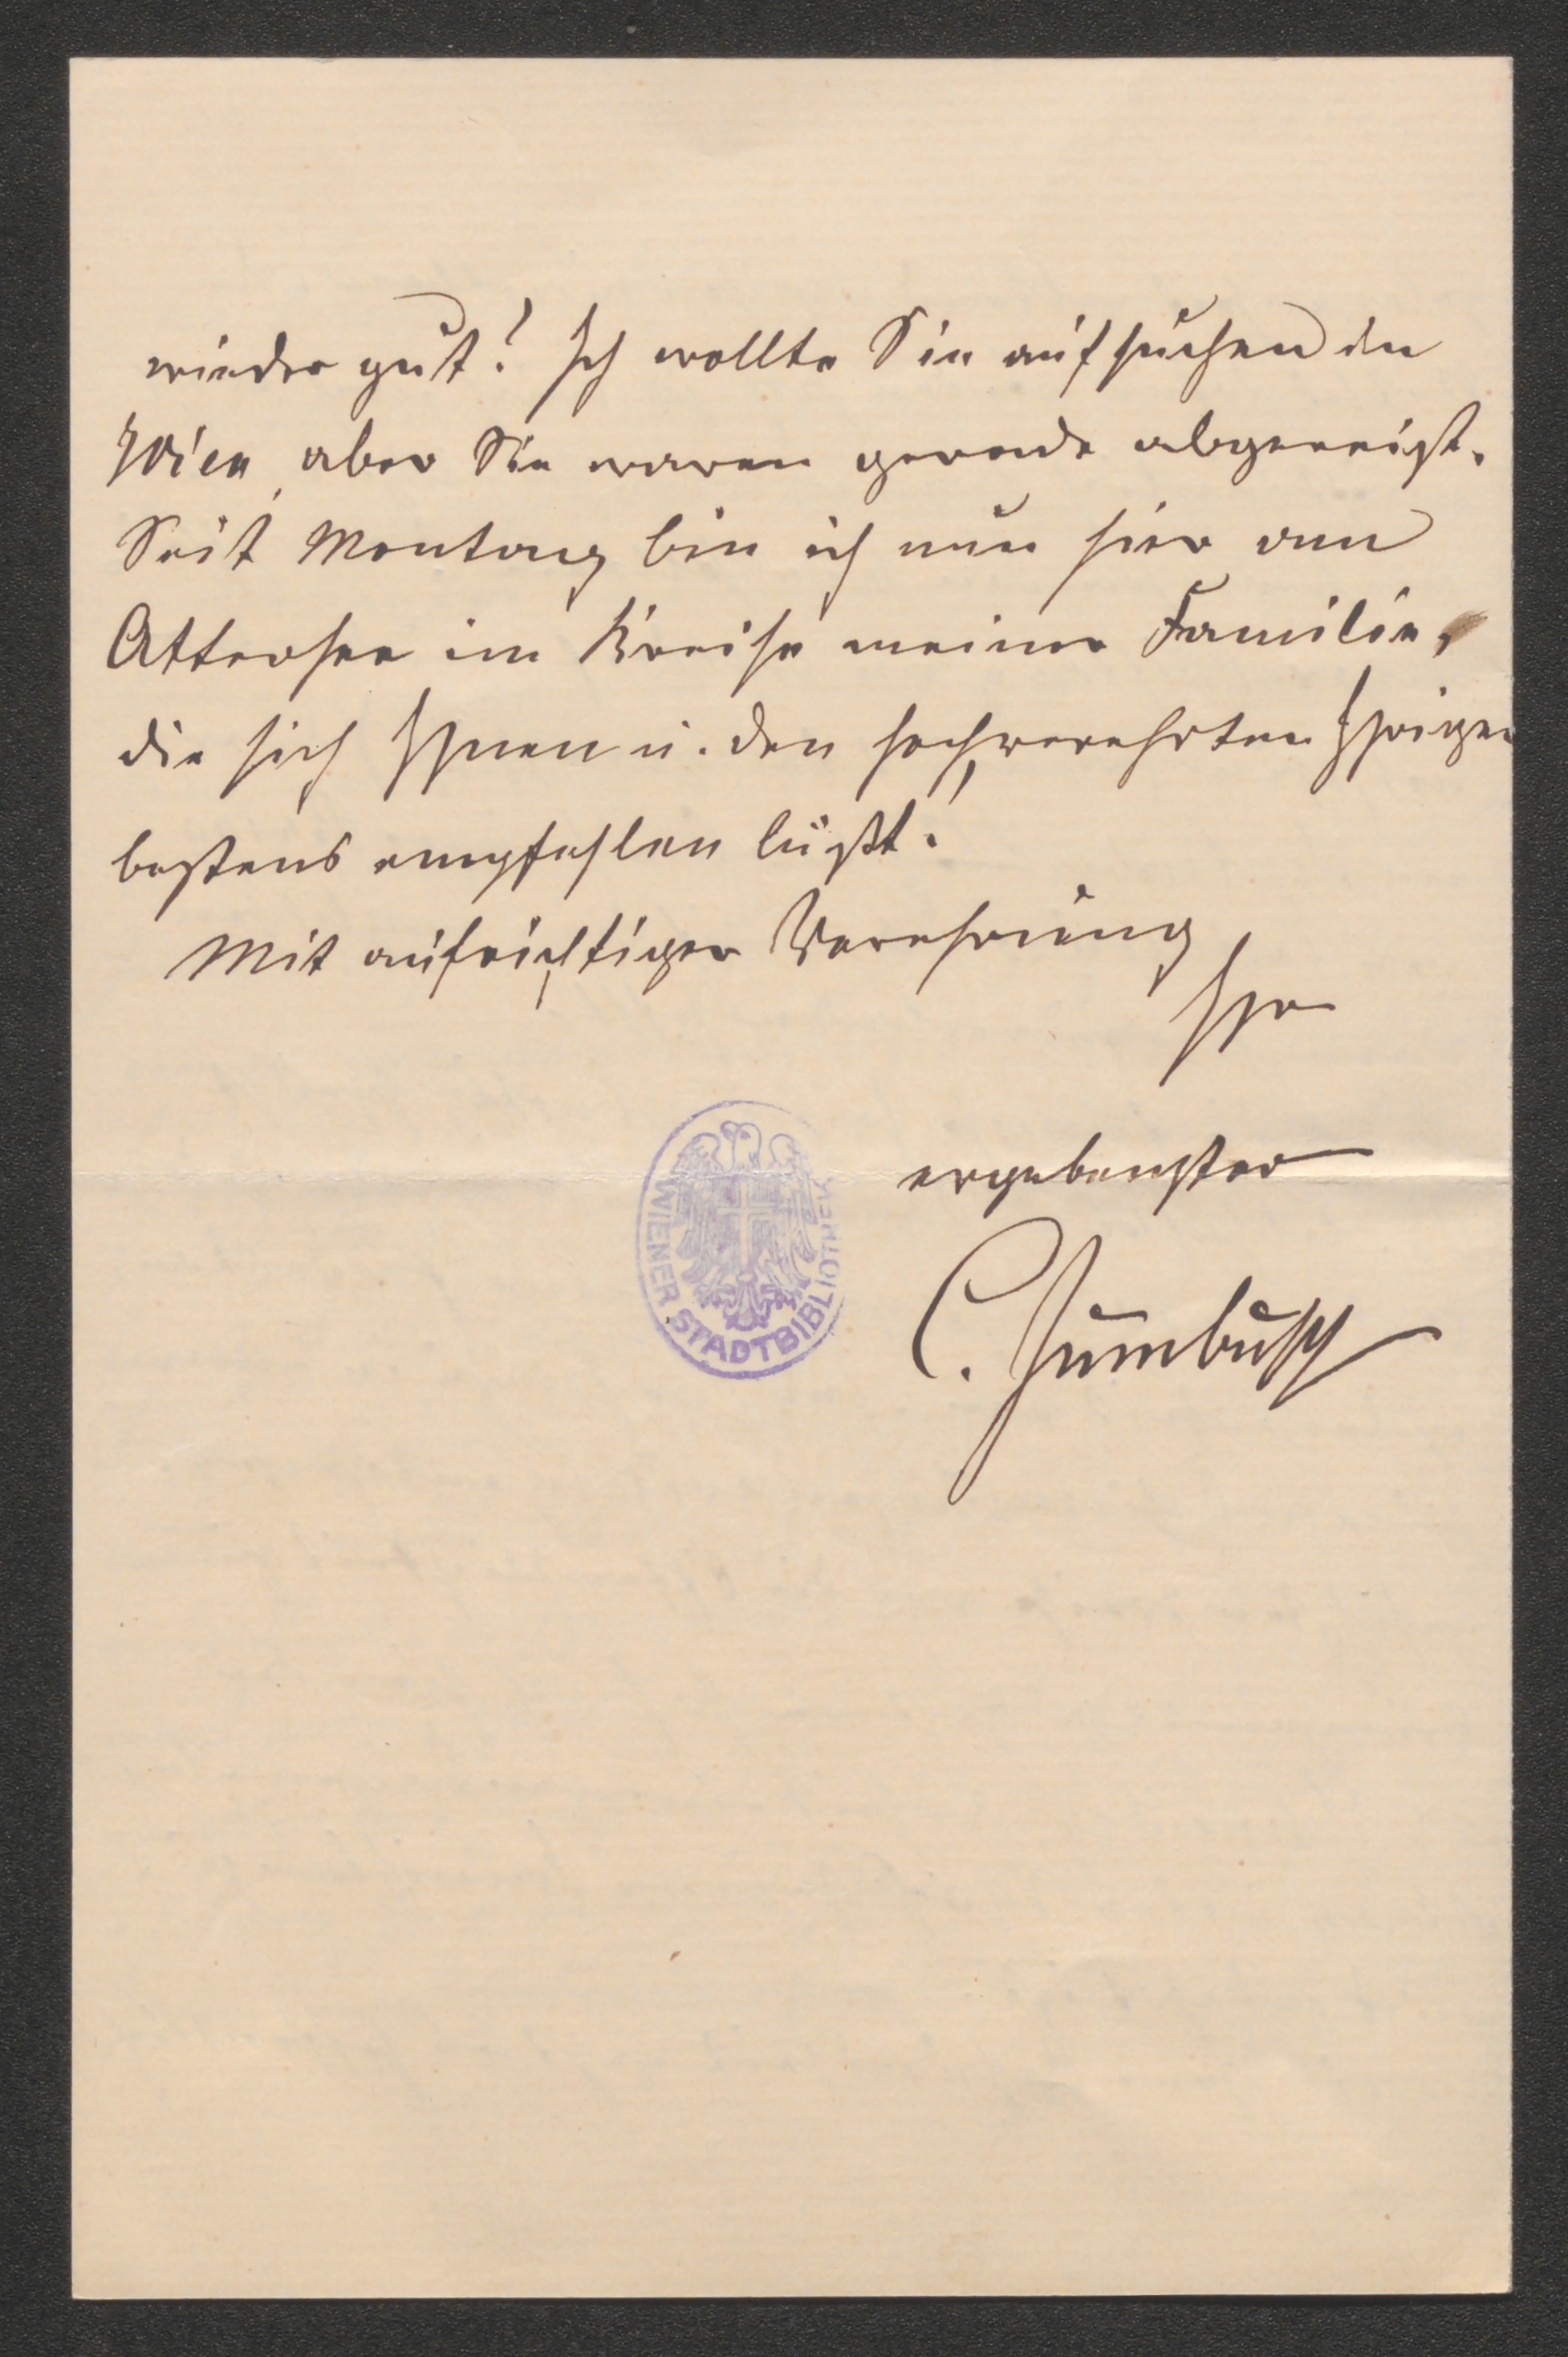 wieder gut! Ich wollte Sie aufsuchen in
Wien, aber Sie waren gerade abgereist.
Seit Montag bin ich nun hier am
Attersee im Kreise meiner Familie,
die sich Ihnen u. den hochverehrten Ihrigen
bestens empfehlen läßt.
Mit aufrichtiger Verehrung
Ihr
ergebenster
C. Zumbusch
WIENER STADTBIBLIOTHEK